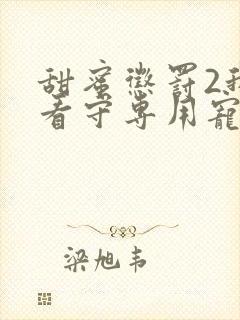 甜蜜惩罚2我
看守专用宠
梁旭韦